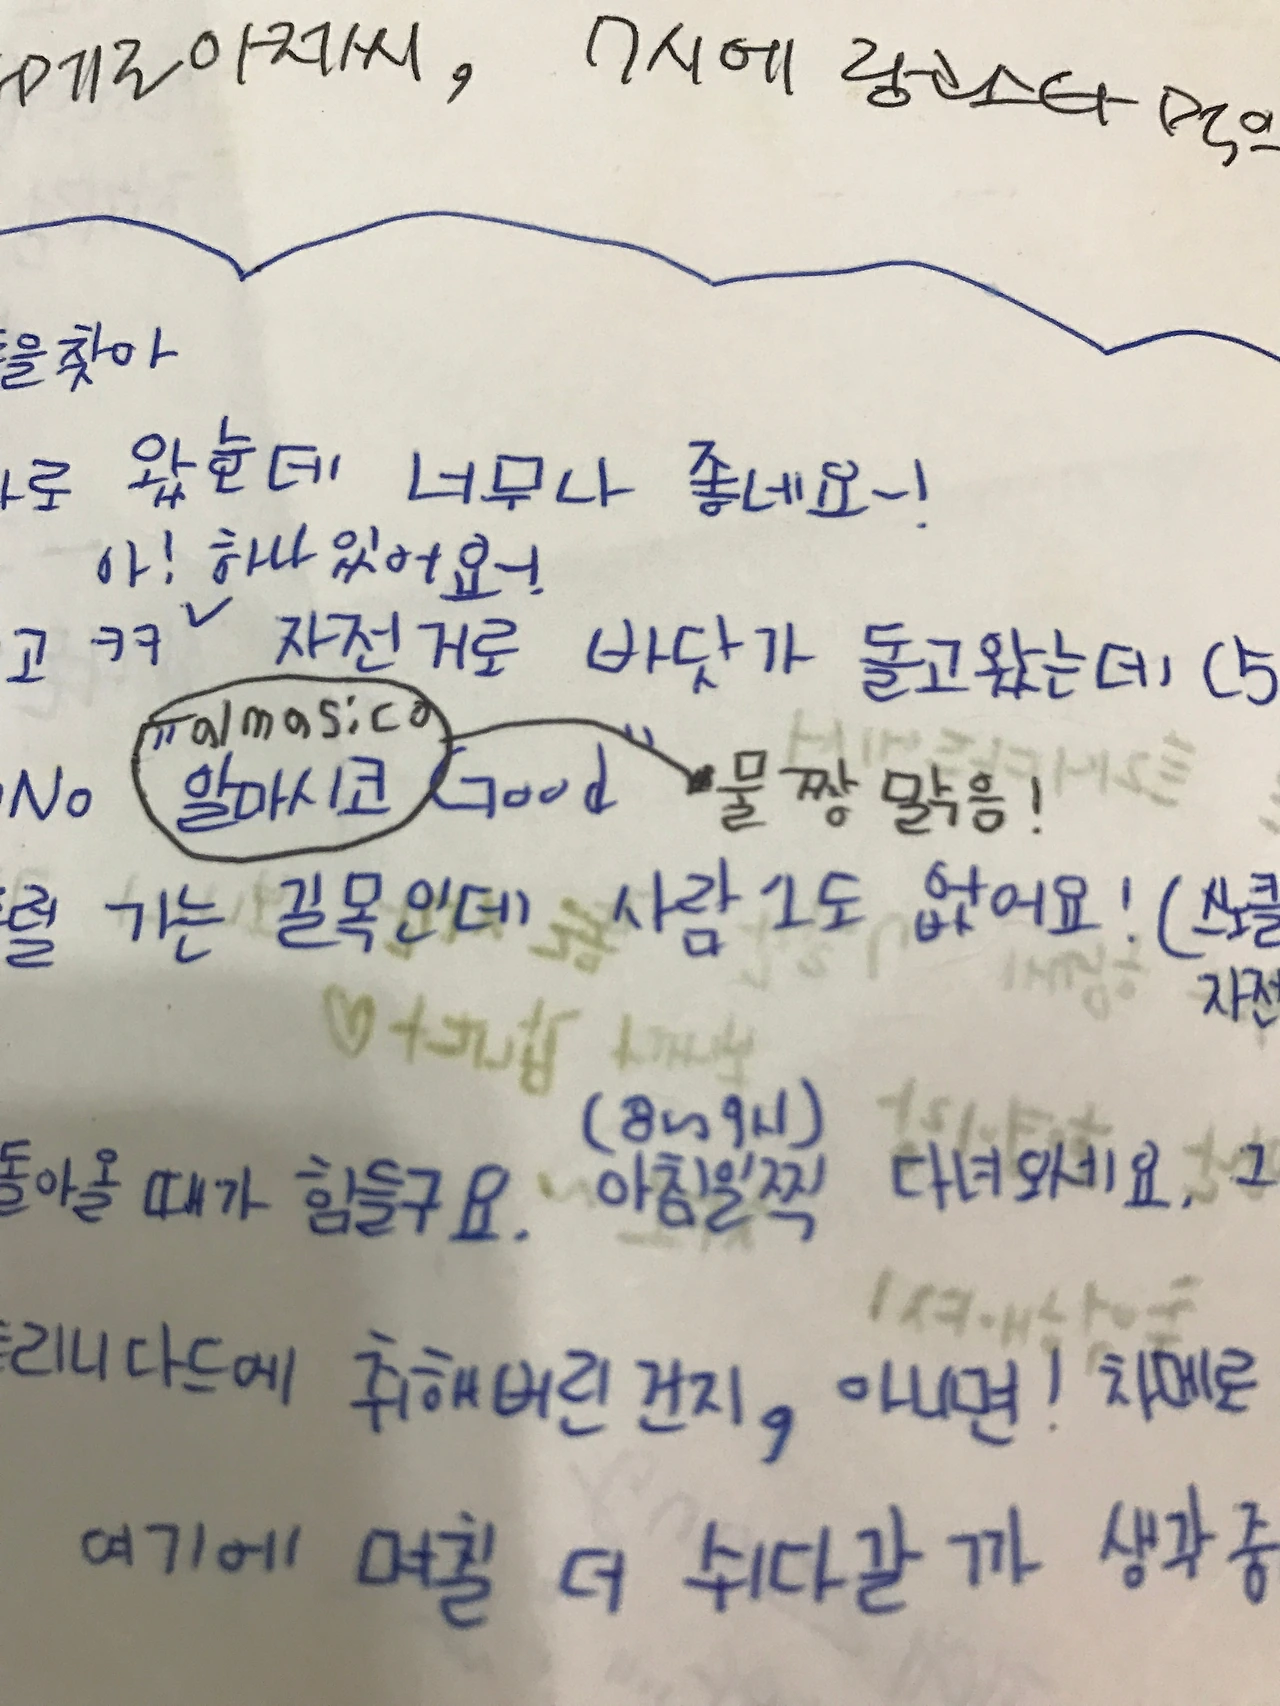 메로아저씨, 7시에 랑고스타 먹으
을찾아
로 왔는데 너무나 좋네요~!
아! 하나 있어요~!
고 ㅋㅋ 자전거로 바닷가 돌고왔는데 (5
"almasico
No 알마시코 Good" 물 짱 맑음!
가는 길목인데 사람 1도 없어요! (스노클
자전
(8~9시)
돌아올 때가 힘들구요. 아침일찍 다녀와세요. 그
트리니다드에 취해버린건지, 아니면! 차메로
여기에 며칠 더 쉬다갈까 생각중